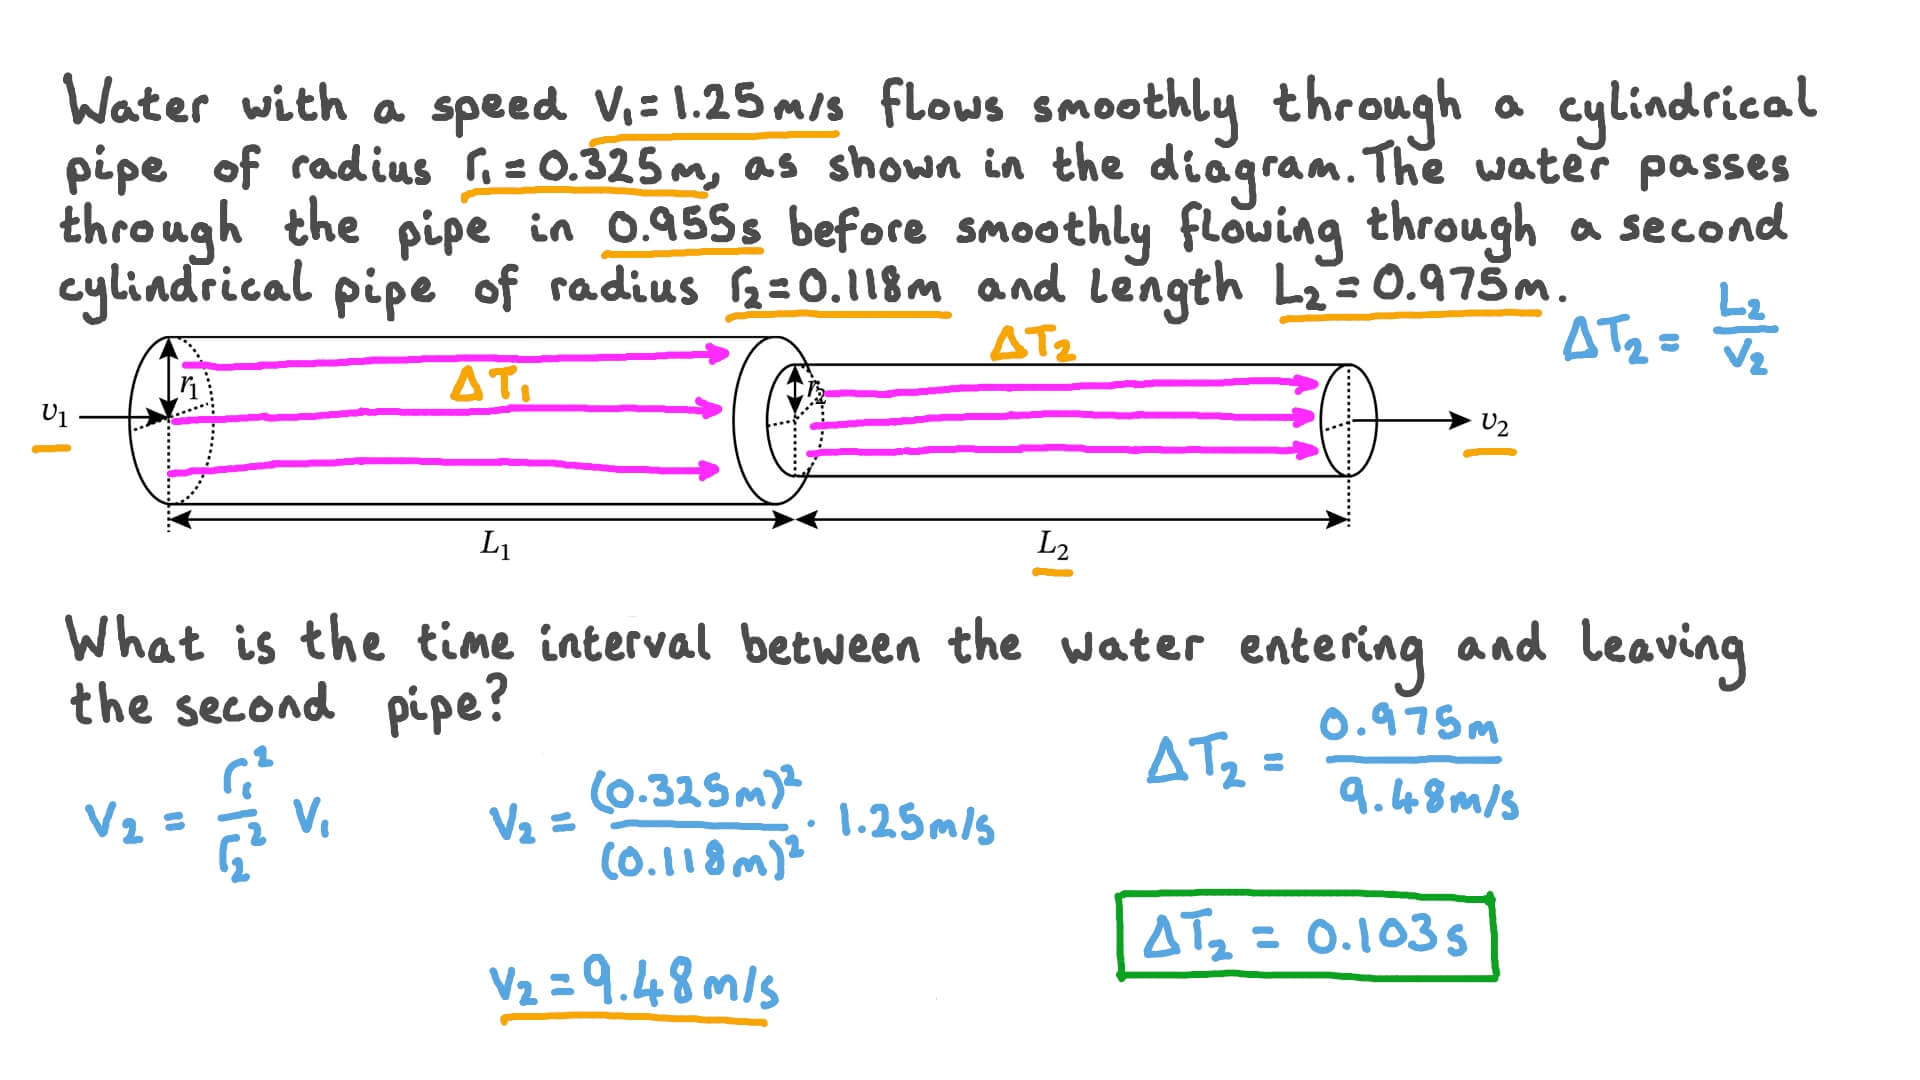 Water with a speed V₁=1.25m/s flows smoothly through a cylindrical
pipe of radius r₁=0.325m, as shown in the diagram. The water passes
through the pipe in 0.955s before smoothly flowing through a second
cylindrical pipe of radius r₂=0.118m and length L₂=0.975m.
ΔT₂ = L₂/V₂
ΔT₁
ΔT₂
r₁
r₂
v₁
v₂
L₁
L₂
What is the time interval between the water entering and leaving
the second pipe?
V₂ = r₁²/r₂² V₁
V₂ = (0.325m)²/(0.118m)² · 1.25m/s
V₂ = 9.48m/s
ΔT₂ = 0.975m/9.48m/s
ΔT₂ = 0.103s